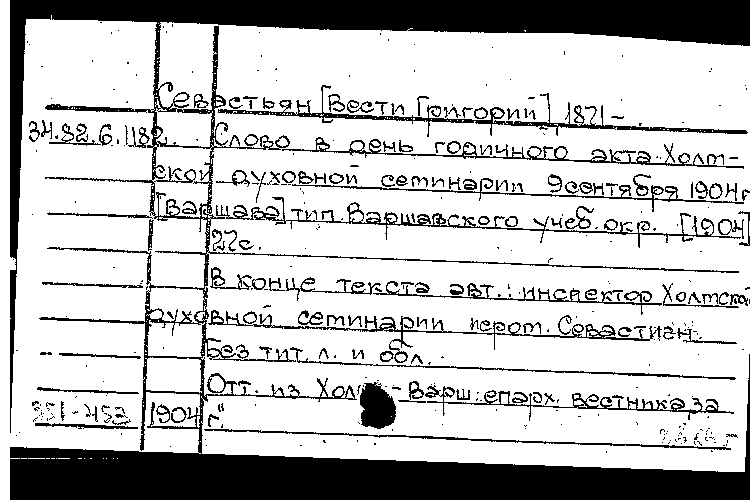 Севастьян [Вести Григорий], 1871-
34.82.6.1182. Слово в день годичного акта Холм-
ской духовной семинарии 9 сентября 1904 г
[Варшава], тип. Варшавского учеб. окр., [1904]
22с.
В конце текста авт.: инспектор Холмской
духовной семинарии иером. Севастиан.
Без тит. л. и обл.
Отт. из Холм.-Варш. епарх. вестника, за
351-453 1904 г."